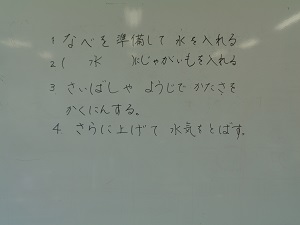 1 なべを準備して水を入れる
2(　水　)にじゃがいもを入れる
3 さいばしや ようじで かたさを
かくにんする。
4. さらに上げて 水気をとばす。